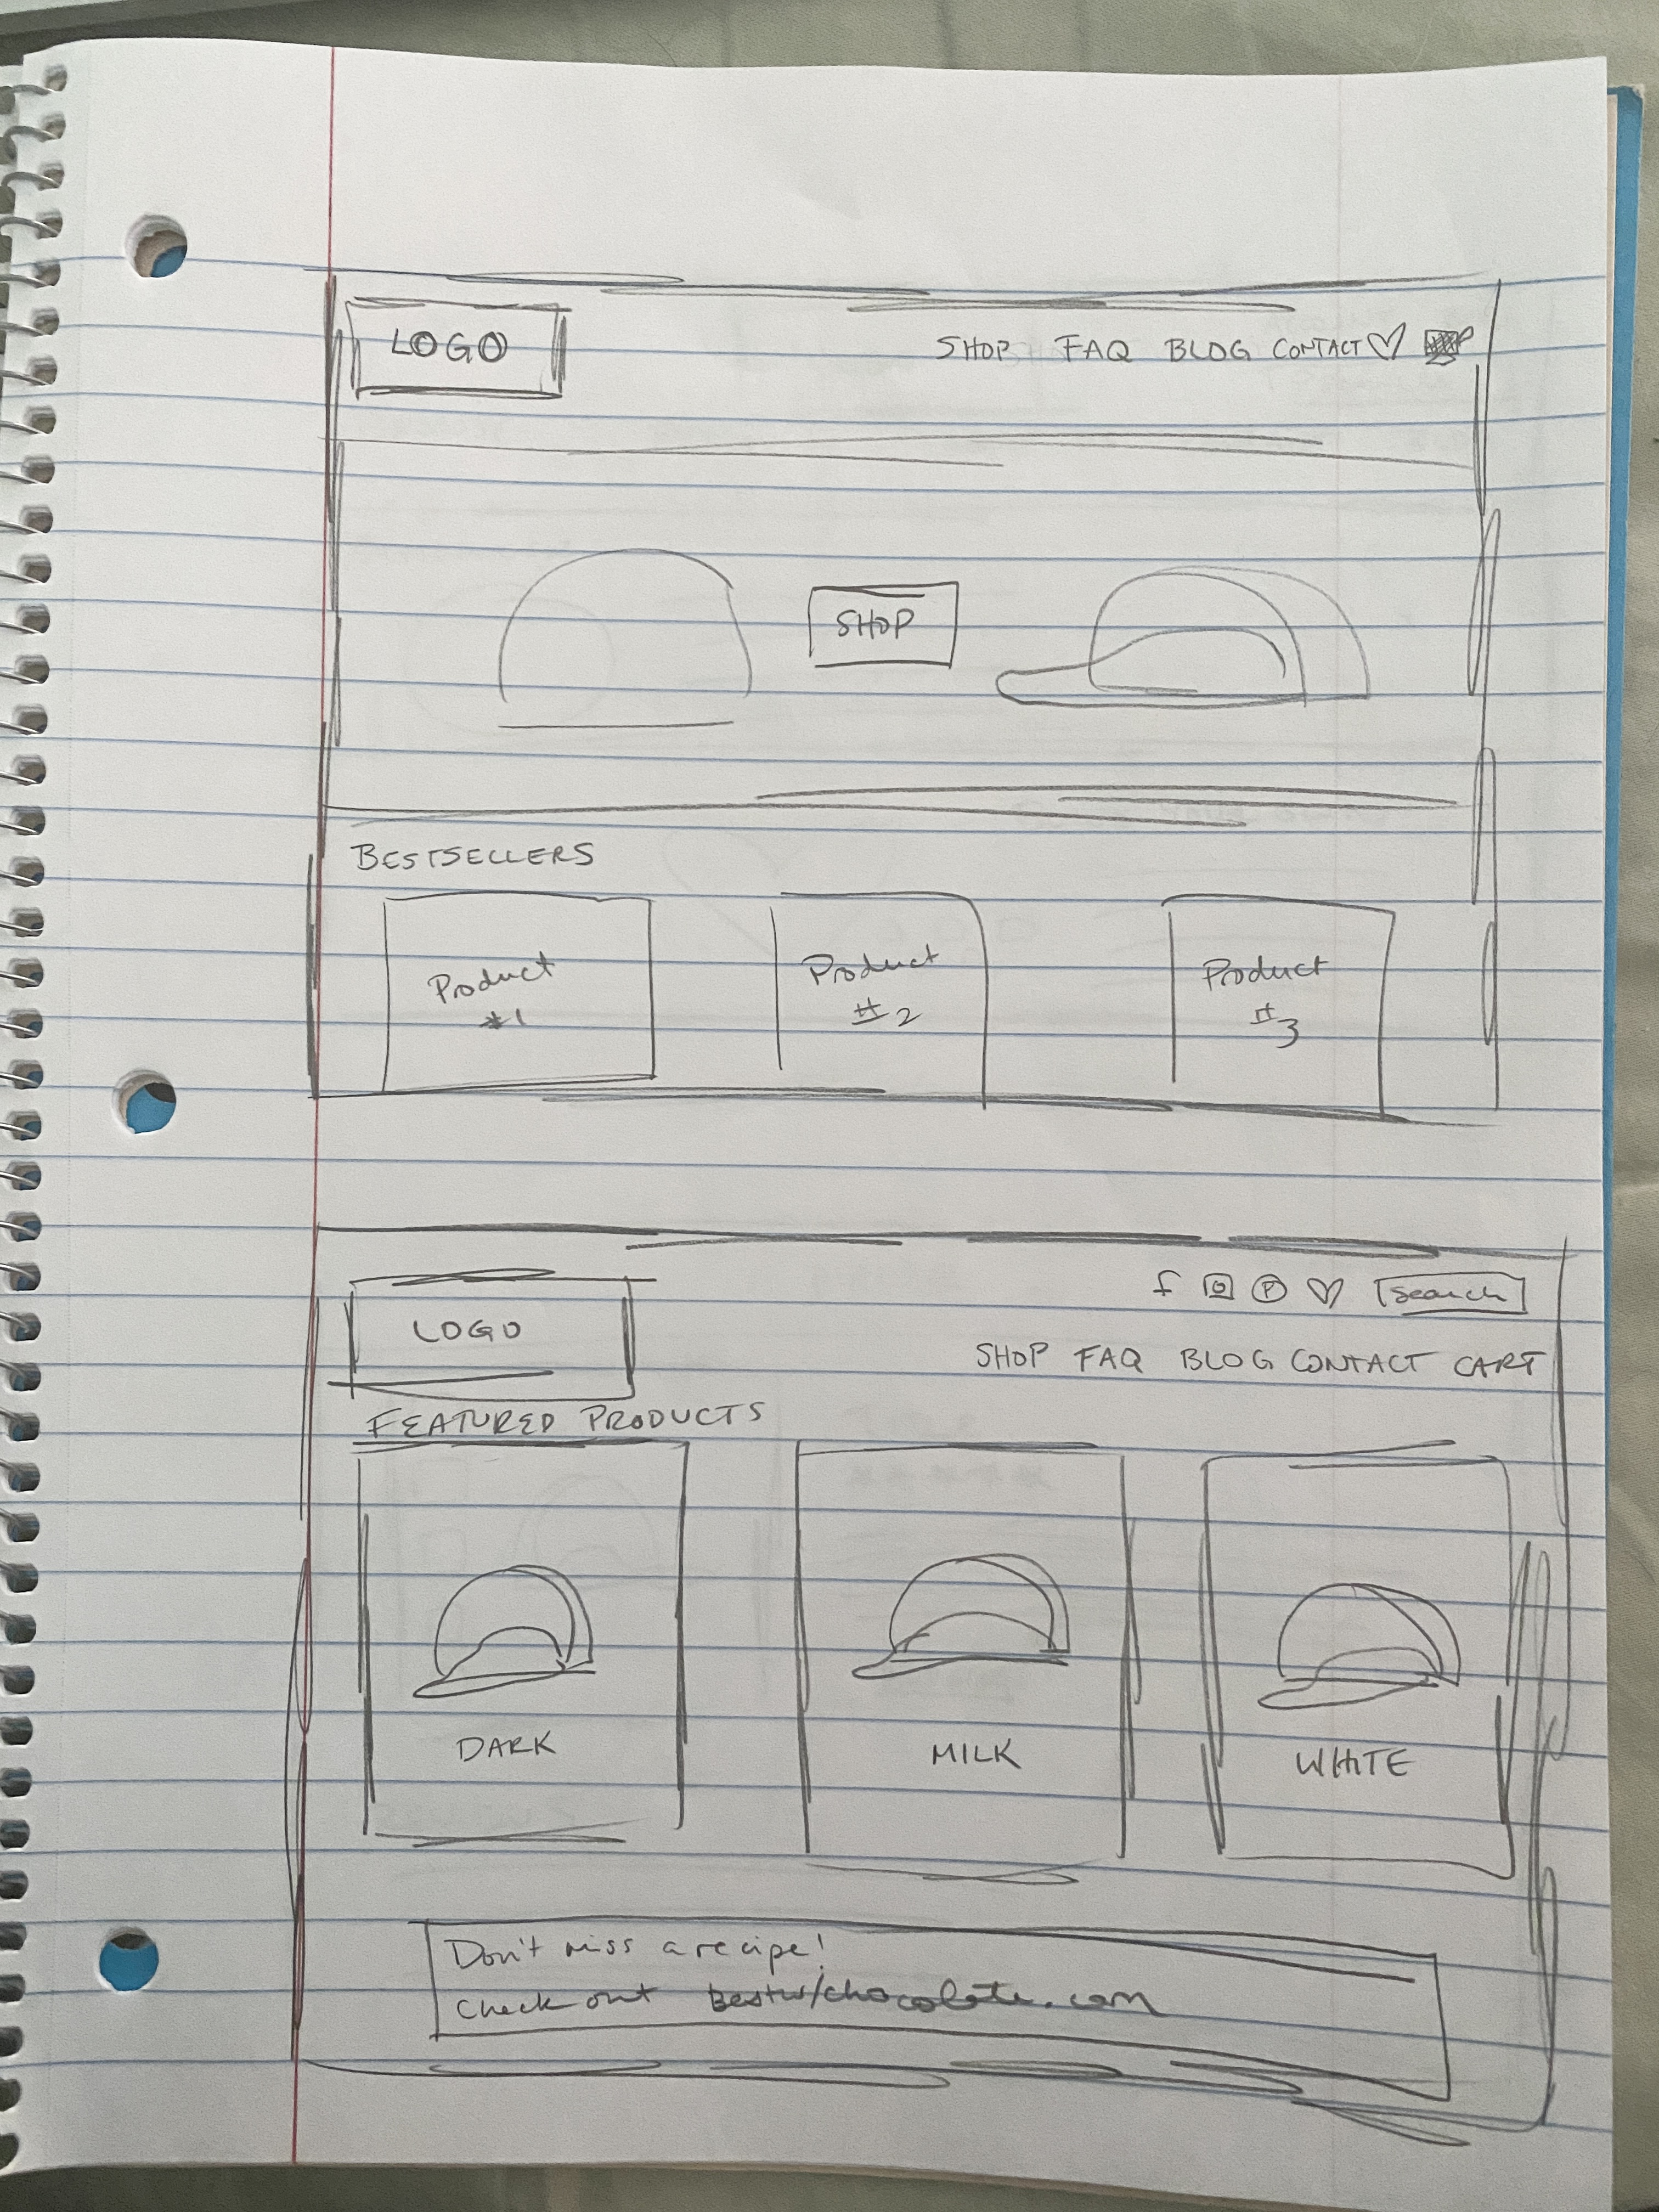 LOGO
SHOP FAQ BLOG CONTACT
SHOP
BESTSELLERS
Product
#1
Product
#2
Product
#3
f P Search
LOGO
SHOP FAQ BLOG CONTACT CART
FEATURED PRODUCTS
DARK
MILK
WHITE
Don't miss a recipe!
Check out bestw/chocolate.com